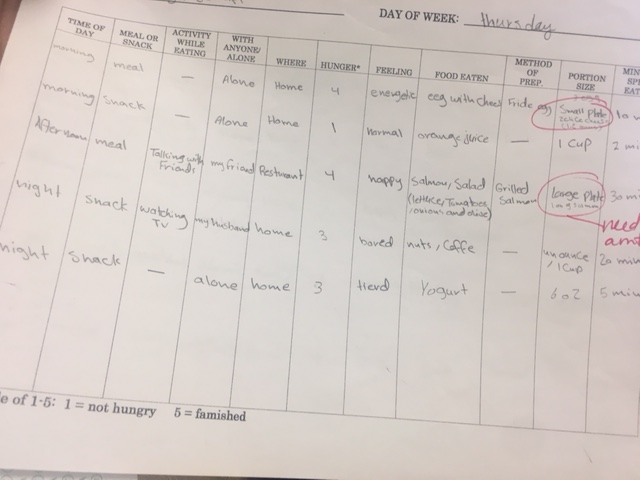 DAY OF WEEK: Thursday
TIME OF DAY MEAL OR SNACK ACTIVITY WHILE EATING WITH ANYONE/ ALONE WHERE HUNGER* FEELING FOOD EATEN METHOD OF PREP. PORTION SIZE MIN
morning meal — Alone Home 4 energetic eeg with chees Fride egg Small Plate
morning snack — Alone Home 1 normal orange juice — 1 Cup 2 mi
Afternoon meal Talking with Friends my friend Resturant 4 happy Salmon, Salad (lettice, Tomatoes, onions and olive) Grilled Salmon Large Plate 30 mi
need
night snack watching TV my husband home 3 bored nuts, Caffe — un ounce / 1 Cup 20 min
night snack — alone home 3 tierd Yogurt — 6 oz 5 min
le of 1-5: 1 = not hungry 5 = famished